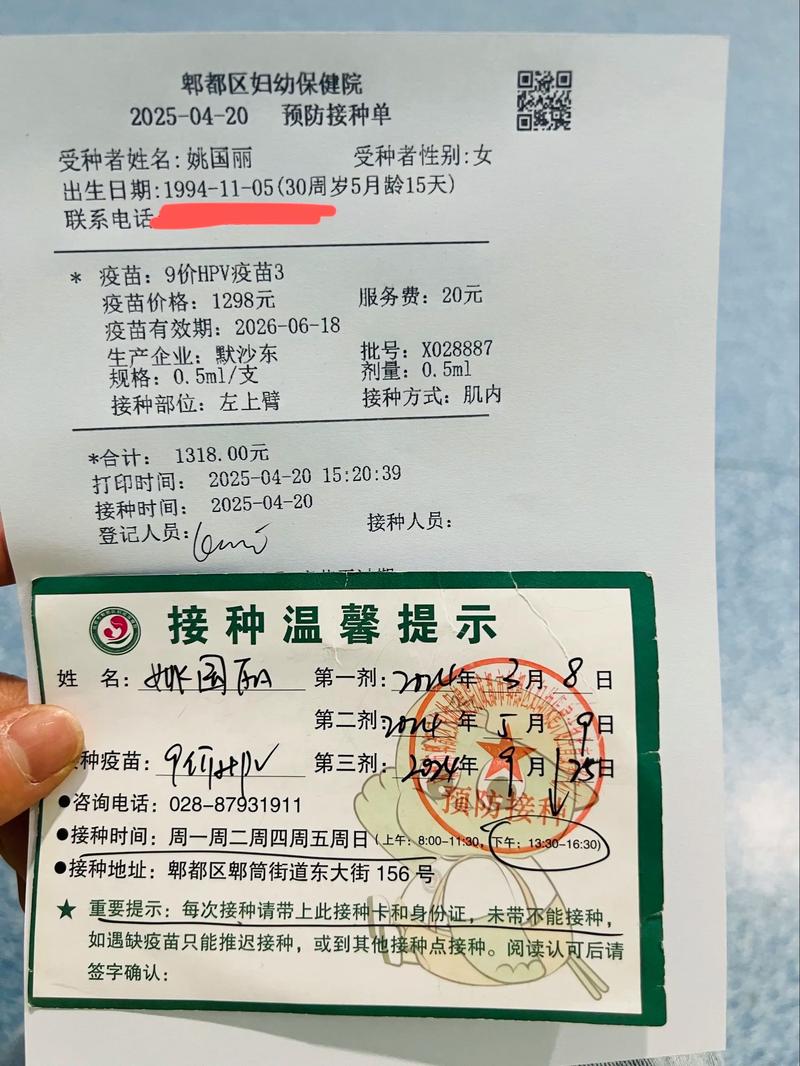 郫都区妇幼保健院
2025-04-20 预防接种单
受种者姓名:姚国丽 受种者性别:女
出生日期:1994-11-05(30周岁5月龄15天)
联系电话
* 疫苗: 9价HPV疫苗3
疫苗价格: 1298元 服务费: 20元
疫苗有效期: 2026-06-18
生产企业: 默沙东 批号: X028887
规格: 0.5ml/支 剂量: 0.5ml
接种部位: 左上臂 接种方式: 肌内
*合计: 1318.00元
打印时间: 2025-04-20 15:20:39
接种时间: 2025-04-20
登记人员: 接种人员:
接种温馨提示
姓 名: 姚国丽 第一剂: 2024年3月8日
第二剂: 2024年5月9日
种疫苗: 9价HPV 第三剂: 2024年9月25日
预防接种
●咨询电话: 028-87931911
●接种时间: 周一周二周四周五周日(上午: 8:00-11:30, 下午: 13:30-16:30)
●接种地址: 郫都区郫筒街道东大街 156 号
★ 重要提示: 每次接种请带上此接种卡和身份证, 未带不能接种,
如遇缺疫苗只能推迟接种, 或到其他接种点接种。阅读认可后请
签字确认: